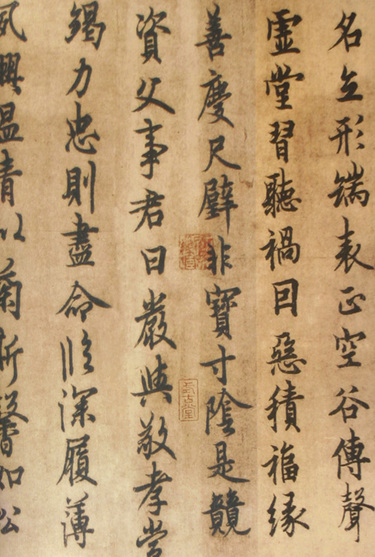 名立形端表正空谷傳聲
虛堂習聽禍因惡積福緣
善慶尺璧非寶寸陰是競
資父事君曰嚴與敬孝當
竭力忠則盡命臨深履薄
夙興溫清以蘭斯馨如松